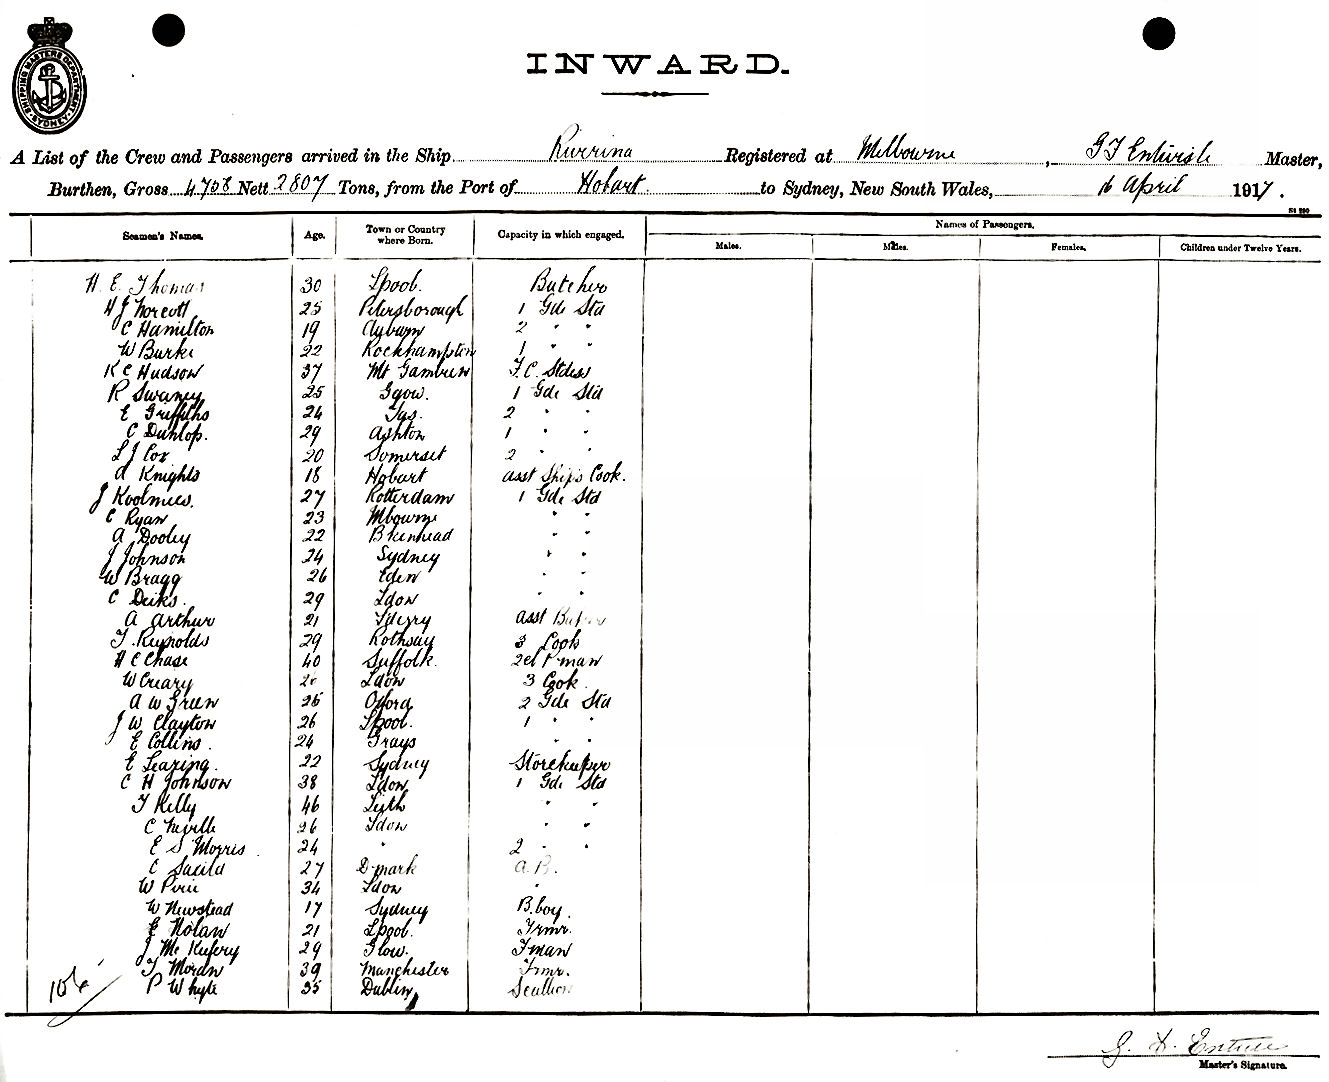 SHIPPING MASTERS DEPARTMENT SYDNEY
INWARD.
A List of the Crew and Passengers arrived in the Ship Riverina Registered at Melbourne, Master,
Burthen, Gross 4708 Nett 2807 Tons, from the Port of Hobart. to Sydney, New South Wales, 16 April 1917.
Seamen's Names. Age. Town or Country where Born. Capacity in which engaged. Names of Passengers.
Males. Males. Females. Children under Twelve Years.
H. E. Thomas 30 Lpool. Butcher
H J Norcott 25 Petersborough 1 Gde Std
C Hamilton 19 Auburn 2 " "
W Burke 22 Rockhampton 1 " "
K C Hudson 37 Mt Gambier F. C. Stdess
R Swaney 25 Ggow. 1 Gde Std
E Griffiths 24 Tas. 2 " "
C Dunlop. 29 Ashton 1 " "
L J Cox 20 Somerset 2 " "
A Knights 18 Hobart asst Ships Cook.
J Koolmees. 27 Rotterdam 1 Gde Std
C Ryan 23 Mbourne " "
A Dooley 22 Bkenhead " "
J Johnson 24 Sydney " "
W Bragg 26 Eden " "
C Deiks. 29 Ldon " "
A Arthur 21 Lderry asst
T. Reynolds 29 Rothsay 3 Cook
H C Chase 40 Suffolk.
W Creary Ldon 3 Cook.
A W Green 26 Oxford 2 Gde Std
J W Clayton 26 Lpool. 1 " "
E Collins. 24 Grays " "
E Learing. 22 Sydney Storekeeper
C H Johnson 38 Ldon 1 Gde Std
T Kelly 46 Leith " "
C Neville 26 Ldon " "
E S Morris. 24 " 2 " "
C 27 D-mark A. B.
W Pirie 34 Ldon "
W Newstead 17 Sydney B. boy.
E Nolan 21 Lpool. Trmr.
J Mc 29 Glow. Fman
T Moran 39 Manchester Trmr.
P Whyte 35 Dublin Scullion
Master's Signature.